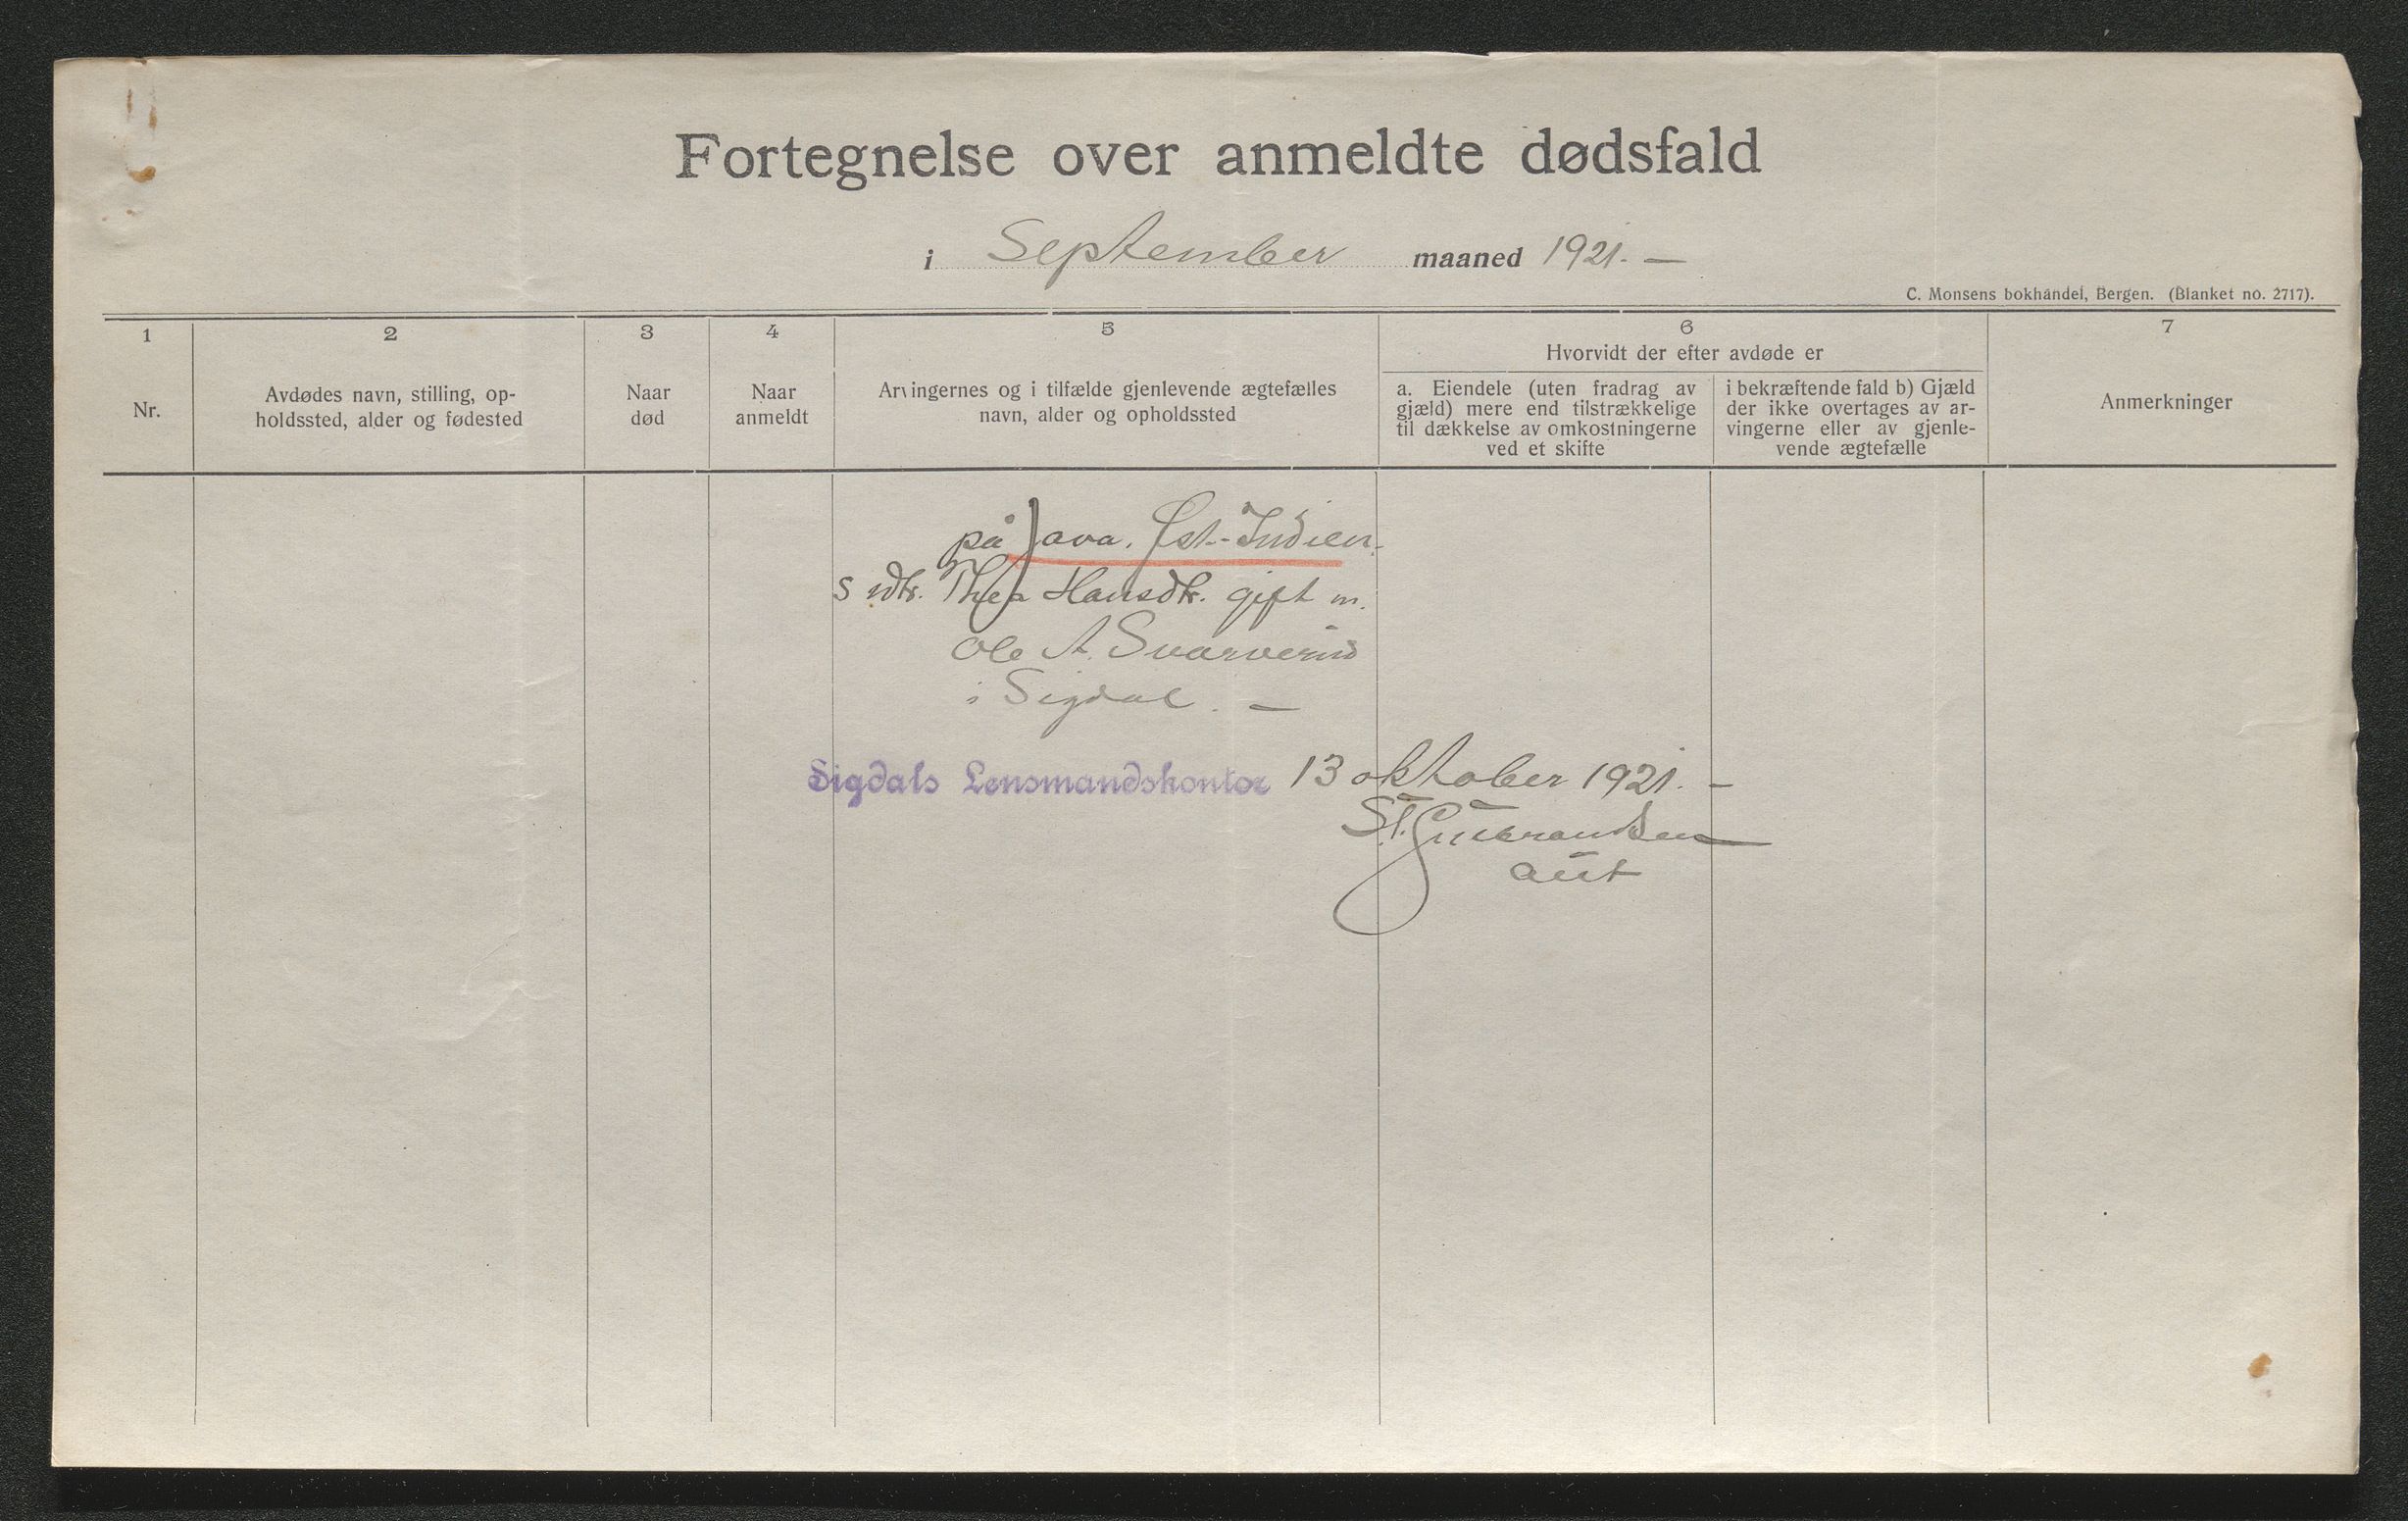 Fortegnelse over anmeldte dødsfald
i September maaned 1921. —
C. Monsens bokhandel, Bergen. (Blanket no. 2717).
1
Nr.
2
Avdødes navn, stilling, op-
holdssted, alder og fødested
3
Naar
død
4
Naar
anmeldt
5
Arvingernes og i tilfælde gjenlevende ægtefælles
navn, alder og opholdssted
6
Hvorvidt der efter avdøde er
a. Eiendele (uten fradrag av
gjæld) mere end tilstrækkelige
til dækkelse av omkostningerne
ved et skifte
i bekræftende fald b) Gjæld
der ikke overtages av ar-
vingerne eller av gjenle-
vende ægtefælle
7
Anmerkninger
på Java. Øst-Indien.
Thea Hansdtr. gift m.
Ole A. Svarverud
i Sigdal. —
Sigdals Lensmandskontor 13 oktober 1921. —
St. Gulbrandsen
aut